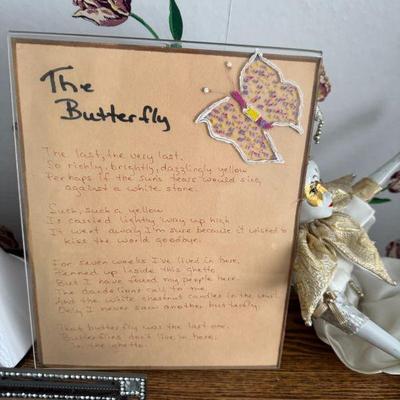 The
Butterfly
The last, the very last,
So richly, brightly, dazzlingly yellow
Perhaps if the suns tears would sing
against a white stone.
Such, such a yellow
Is carried lightly way up high
It went away I'm sure because it wished to
kiss the world goodbye.
For seven weeks I've lived in here,
Penned up inside this ghetto
But I have found my people here.
The dandelions call to me
And the white chestnut candles in the court.
Only I never saw another butterfly.
That butterfly was the last one.
Butterflies don't live in here,
In the ghetto.